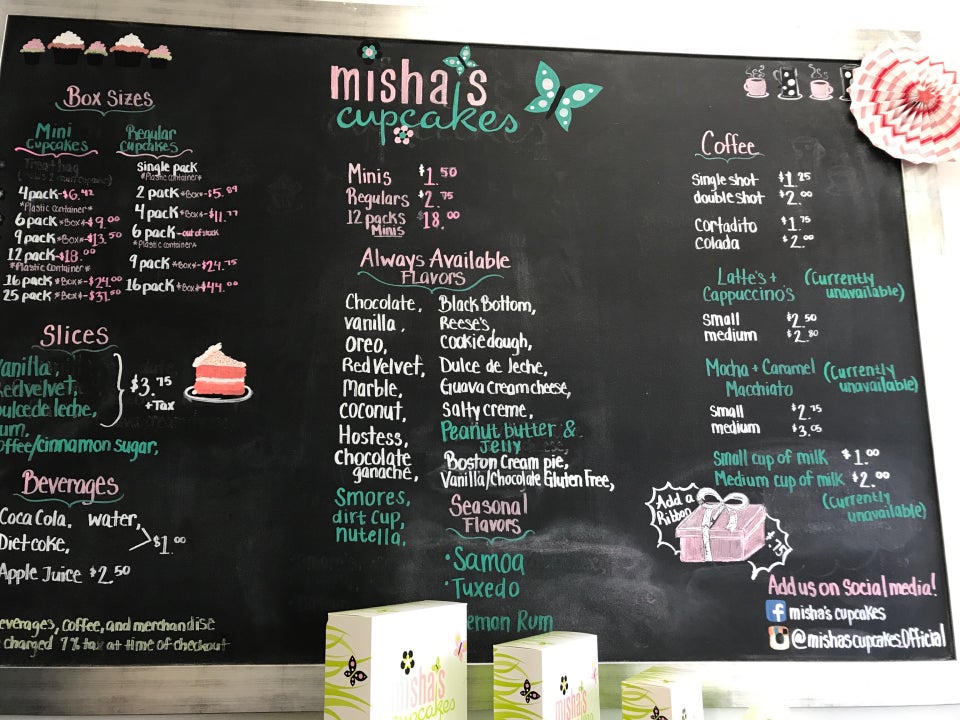 misha's
cupcakes
Box Sizes
Mini
Cupcakes
4 pack-$6.42
*Plastic container*
6 pack *Box*-$9.00
9 pack *Box*-$13.50
12 pack-$18.00
*Plastic container*
16 pack *Box*-$24.00
25 pack *Box*-$37.50
Regular
Cupcakes
single pack
*Plastic container*
2 pack *Box*-$5.89
4 pack *Box*-$11.77
6 pack -out of stock
*Plastic container*
9 pack *Box*-$24.75
16 pack *Box*-$44.00
Slices
Vanilla,
Redvelvet,
Dulce de leche,
um,
offee/cinnamon sugar,
$3.75
+Tax
Beverages
Coca Cola, water,
Diet coke,
$1.00
Apple Juice $2.50
everages, coffee, and merchandise
charged 7% tax at time of checkout
Minis $1.50
Regulars $2.75
12 packs $18.00
Minis
Always Available
Flavors
Chocolate,
vanilla,
oreo,
Red Velvet,
Marble,
coconut,
Hostess,
chocolate
ganache,
Smores,
dirt cup,
nutella,
Black Bottom,
Reese's
cookie dough,
Dulce de leche,
Guava cream cheese,
Salty creme,
Peanut butter &
Jelly
Boston Cream pie,
Vanilla/Chocolate Gluten Free,
Seasonal
Flavors
•Samoa
•Tuxedo
emon Rum
Coffee
Single shot $1.25
double shot $2.00
Cortadito $1.75
Colada $2.00
Latte's +
Cappuccino's
(Currently
unavailable)
small $2.50
medium $2.80
Mocha + Caramel
Macchiato
(Currently
unavailable)
small $2.75
medium $3.05
Small cup of milk $1.00
Medium cup of milk $2.00
(Currently
unavailable)
Add a
Ribbon
.75
Add us on social media!
misha's cupcakes
@mishascupcakesOfficial
misha's
cupcakes
misha's
cupcakes